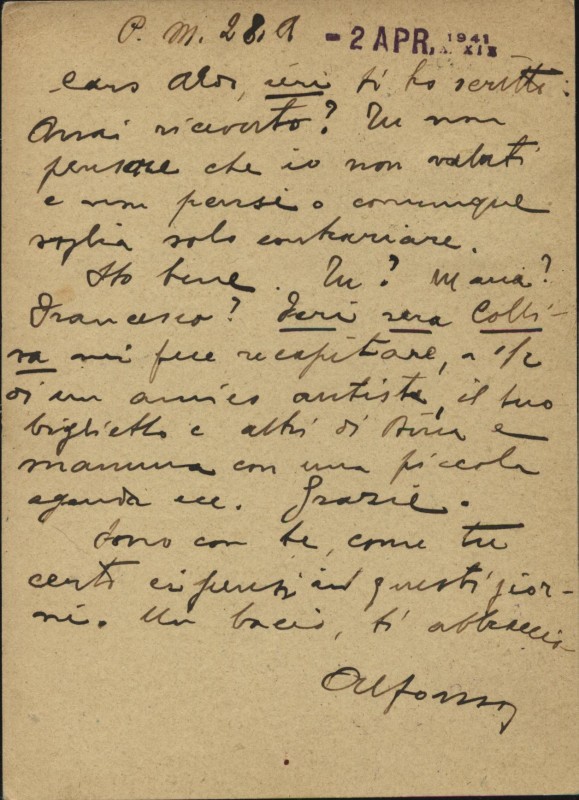 P. M. 28. A - 2 APR. 1941 A. XIX
Caro Aldo, ieri ti ho scritto:
Avrai ricevuto? Tu non
pensare che io non valuti
e non pensi o comunque
voglia solo contrariare.
Sto bene. Tu? Maria?
Francesco? Ieri sera Colli-
va mi fece recapitare, a 1/2
di un amico autista, il tuo
biglietto e altri di Dina e
mamma con una piccola
agenda ecc. Grazie.
Sono con te, come tu
certo ci pensi in questi gior-
ni. Un bacio, ti abbraccio
Alfonso